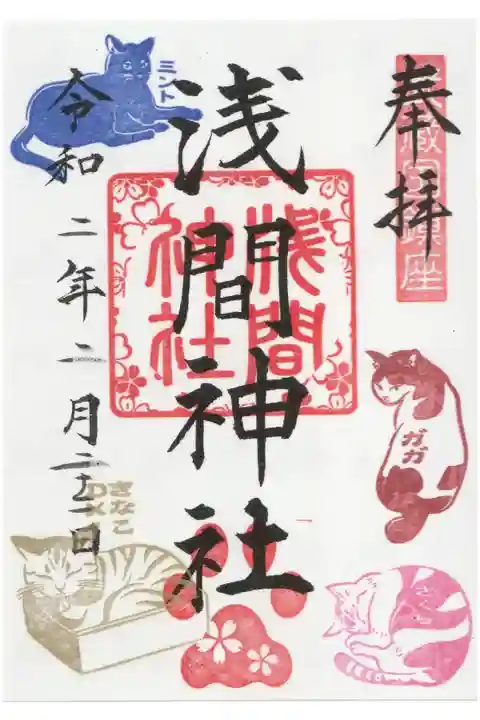 奉拝
浅間神社
淺間
神社
令和二年二月二十二日
ミント
ガガ
きなこ
DX